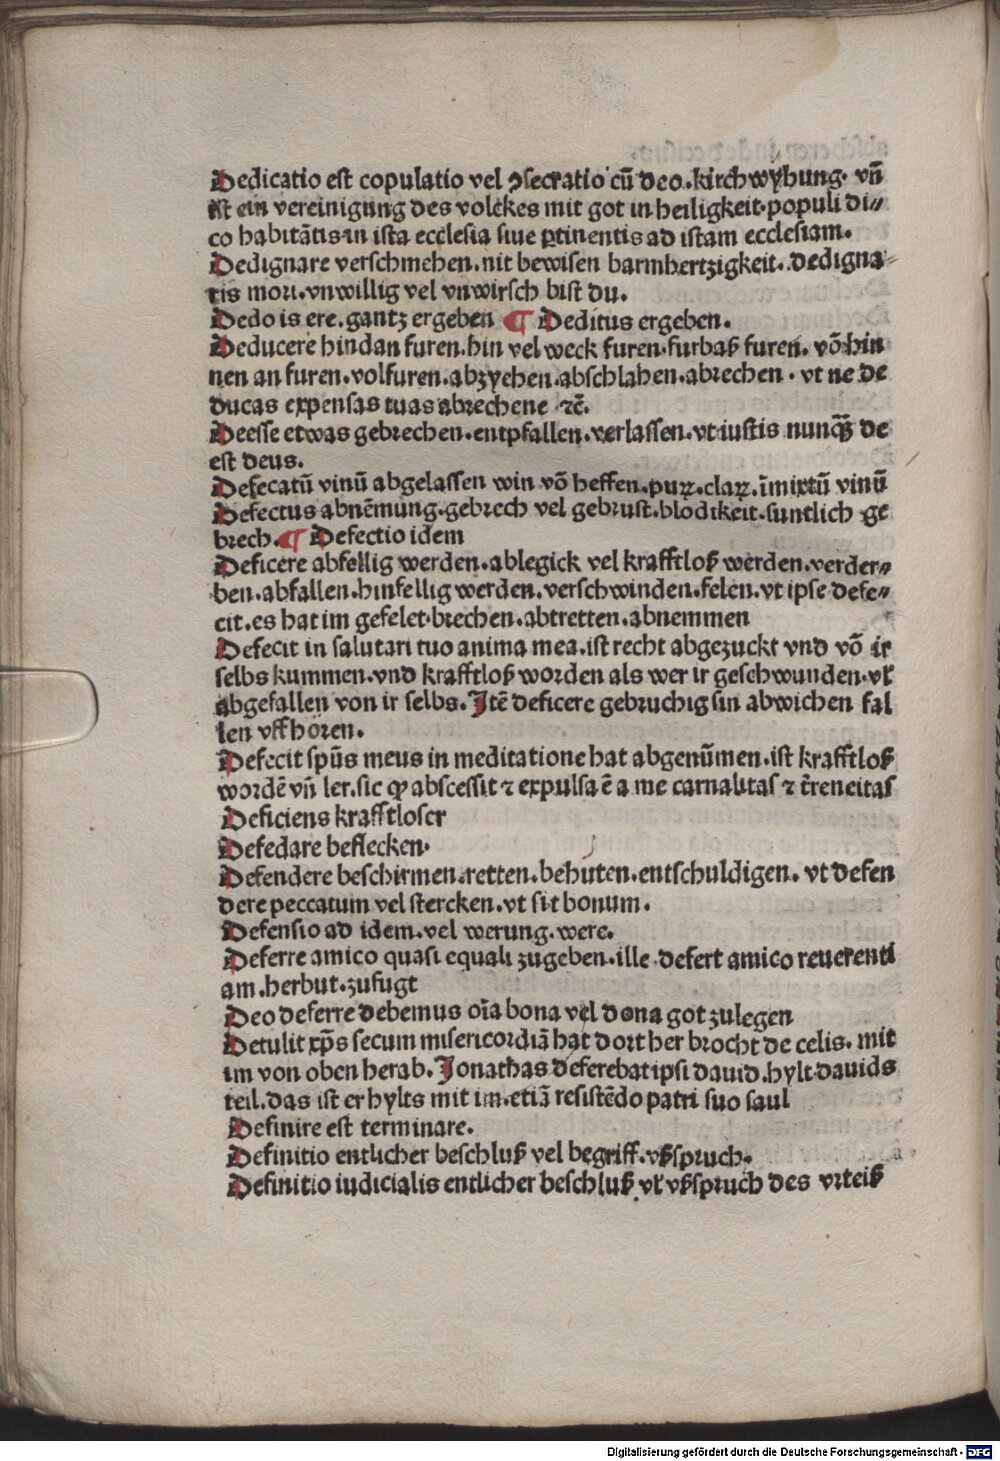 Dedicatio est copulatio vel ꝯsecratio cū deo.kirchwyhung. vn̄
ist ein vereinigung des volckes mit got in heiligkeit.populi di⸗
co habitātis in ista ecclesia siue ꝑtinentis ad istam ecclesiam.
Dedignare verschmehen.nit bewisen barmhertzigkeit.dedigna⸗
ris mori.vnwillig vel vnwirsch bist du.
Dedo is ere.gantz ergeben ¶ Deditus ergeben.
Deducere hindan furen.hin vel weck furen.furbaß furen. vō hin
nen an furen.volfuren.abzyehen.abschlahen.abrechen. vt ne de
ducas expensas tuas abrechene ⁊c̄.
Deesse etwas gebrechen.entpfallen.verlassen.vt iustis nunqꝫ de
est deus.
Defecatū vinū abgelassen win vō heffen.puꝝ.claꝝ.īmixtū vinū
Defectus abnēmung.gebrech vel gebrust.blodikeit.suntlich ge
brech.¶ Defectio idem
Deficere abfellig werden.ablegick vel krafftloß werden.verder⸗
ben.abfallen.hinfellig werden.verschwinden.felen.vt ipse defe⸗
cit.es hat im gefelet.brechen.abtretten.abnemmen
Defecit in salutari tuo anima mea.ist recht abgezuckt vnd vō ir
selbs kummen.vnd krafftloß worden als wer ir geschwunden.vł
abgefallen von ir selbs.Itē deficere gebruchig sin abwichen fal
len vffhören.
Defecit spūs meus in meditatione hat abgenūmen.ist krafftloß
wordē vn̄ ler.sic ꝙ abscessit ⁊ expulsa ē a me carnalitas ⁊ t̄reneitas
Deficiens krafftloser
Defedare beflecken.
Defendere beschirmen.retten.behuten.entschuldigen. vt defen
dere peccatum vel stercken.vt sit bonum.
Defensio ad idem.vel werung.were.
Deferre amico quasi equali zugeben.ille defert amico reuerenti
am.herbut.zufugt
Deo deferre debemus oīa bona vel dona got zulegen
Detulit xp̄s secum misericordiā hat dort her brocht de celis. mit
im von oben herab.Jonathas deferebat ipsi dauid.hylt dauids
teil.das ist er hylts mit im.etiā resistēdo patri suo saul
Definire est terminare.
Definitio entlicher beschluß vel begriff.vßspruch.
Definitio iudicialis entlicher beschluß vł vßspruch des vrteilß
Digitalisierung gefördert durch die Deutsche Forschungsgemeinschaft - DFG